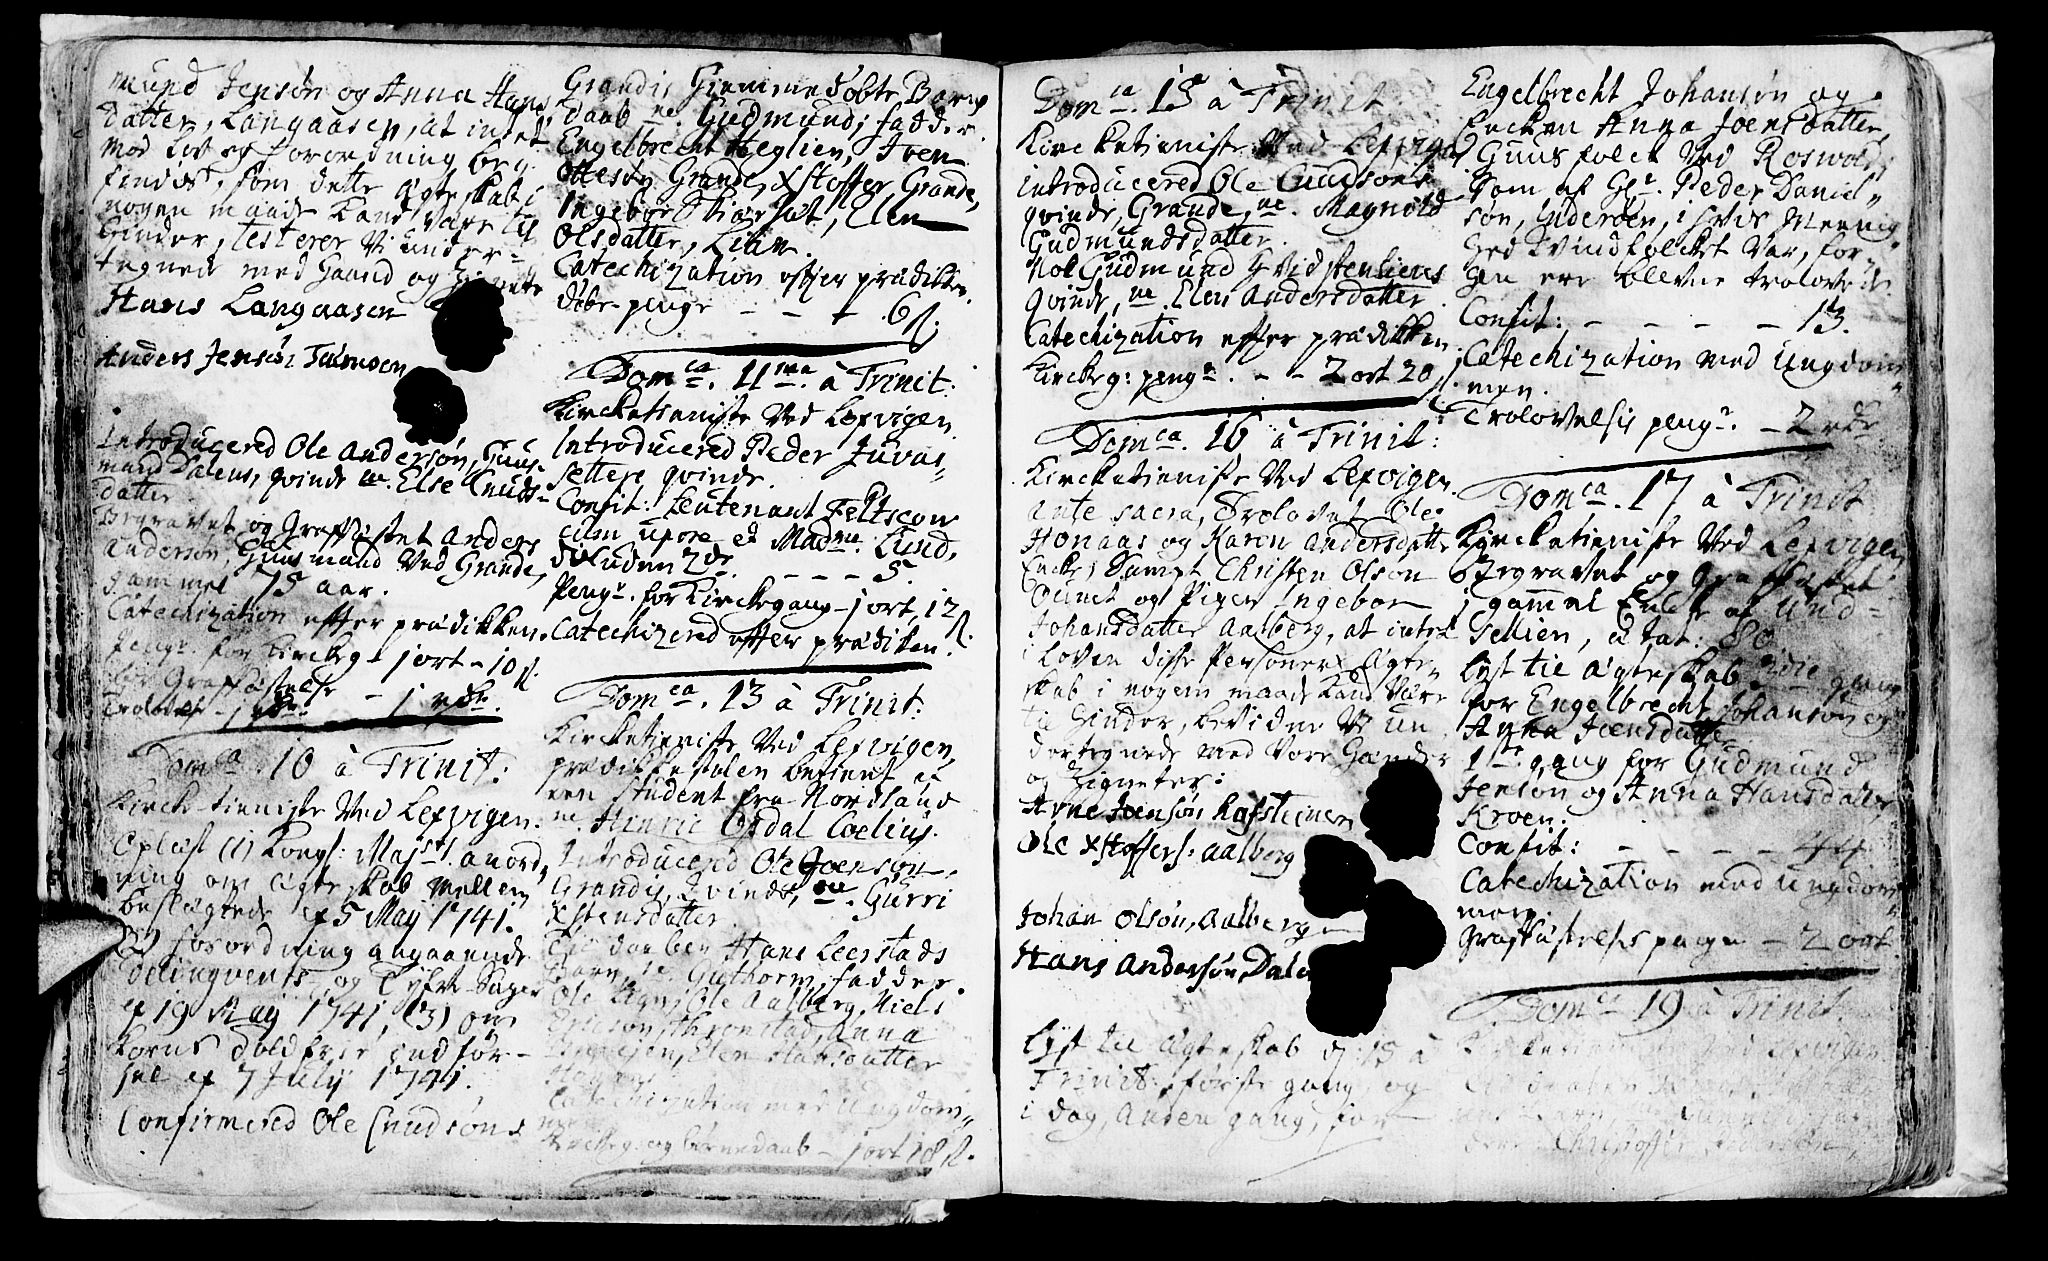 mund Jensøn og Anna Hans
datter, Langaasen, at intet
mod Lov og forordning beg
findes, som dette ægteskab i
nogen maade kand være til
hinder, testerer vi under-
tegnede med haand og
Hans Langaasen
Anders Jensøn Tulmoen
Introducered Ole Andersøn, Huus-
mand Dalens, qvinde ne. Else Cnuds-
datter
Begravet og Graffæstet Anders
Andersøn, Huusmand ved Grande,
gammel 75 aar.
Catechization effter prædikken.
Penge for kirckeg - 1 ort - 10 s.
for Graffæstelse
Trolovels - 1 rdr. - 1 rdr.
Domca. 10 à Trinit:
Kircketieniste ved Lexvigen.
Oplæst (1) Kongl: Majsts. anord,,
ning om ægteskab mellem
beslægtede af 5 Maij 1741.
(2) forordning angaaende
Delinqvents- og Tyfve-Sager
af 19 Maij 1741, (3) om
Korns Toldfrie indfør-
sel af 7 Julij 1741.
Confirmered Ole Cnudsøns
Grandis Hiemmedøbte Barns
daab ne. Gudmund; fadder
Engelbrecht Heglien, Joen
Ottesøn Grande, Xstoffer Grande,
Ingebor Skiærset, Elen
Olsdatter, Lien.
Catechization efter prædikken.
Døbe-penge - - - 6 s.
Domca. 11ma. à Trinit:
Kircketieniste ved Lexvigen
Introducered Peder Juvas-
setters qvinde.
Confit: Leutenant Feltscou
cum uxore et Madme. Lund,
dixuden 2de. - - - 5.
Pengr. for Kirckegang - 1 ort, 12 s.
Catechizered effter prædiken.
Domca. 13 à Trinit:
Kircketieniste ved Lexvigen,
prædikkestolen betient af
een student fra Nordland
ne. Henric Opdal Coelius.
Introducered Ole Joensøn
Grandis, Qvinde, ne. Gurri
Xstensdatter
Til daaben Hans Leerstads
Barn, ne. Guthorm, fadder.
Ole Ole Aalberg, Niels
Ericsøn Anna
Elen
Catechization med Ungdom,,
men
Kirckeg: og barnedaab - 1 ort 18 s.
Domca. 15 à Trinit
Kircketieniste ved Lexvigen
introducered Ole Cnudsøns
qvinde, Grande, ne. Magnild
Gudmundsdatter.
Nok Gudmund Hvidsteensliens
qvinde, ne. Elen Andersdatter
Catechization effter prædikken
Kirckg: peng. - - 2 ort 20 s.
Domca. 16 à Trinit:
Kircketieniste ved Lexvigen.
Ante sacra, Trolovet Ole
Honaas og Karen Andersdatter
Encke, Sampt Christen Olsøn
og Pigen Ingebor
Johansdatter Aalberg, at intet
i Loven disse Personers ægte,,
skab i nogen maade kand være
til hinder, bevidne vi un
dertegnede med vore Hænder
og Zigneter:
Arne Joensøn Kafsteinen
Ole Xstoffers: Aalberg
Johan Olsøn, Aalberg
Hans Andersøn, Dalen
Lyst til ægteskab d: 15 à
Trinit: første gang, og
i dag, anden gang, for
Engelbrecht Johansøn og
Encken Anna Joensdatter,
Huusfolck ved Roswold,
som af Hr. Peder Daniel,,
søn, Inderøen, i hvis Meenig
hed Qvindfolcket var, for
hen ere blevne trolovede.
Confit: - - - - - 13.
Catechization med Ungdom
men.
Trolovelsis peng. - 2 rdr.
Domca. 17 à Trinit
Kircketieniste ved Lexvigen
Begravet og Graffæstet
1 gammel Encke af Und-
setlien, ætat: 80
Lyst til ægteskab 3die gang
for Engelbrecht Johansøn og
Anna Joensdatter
1ste. gang for Gudmund
Jensøn og Anna Hansdatter
Kroen.
Confit: - - - - - 44
Catechization med Ungdom,,
men.
Graffæstelses penge - 2 ort
Domca 19 à Trinit.
Kircketieniste ved Lexvigen